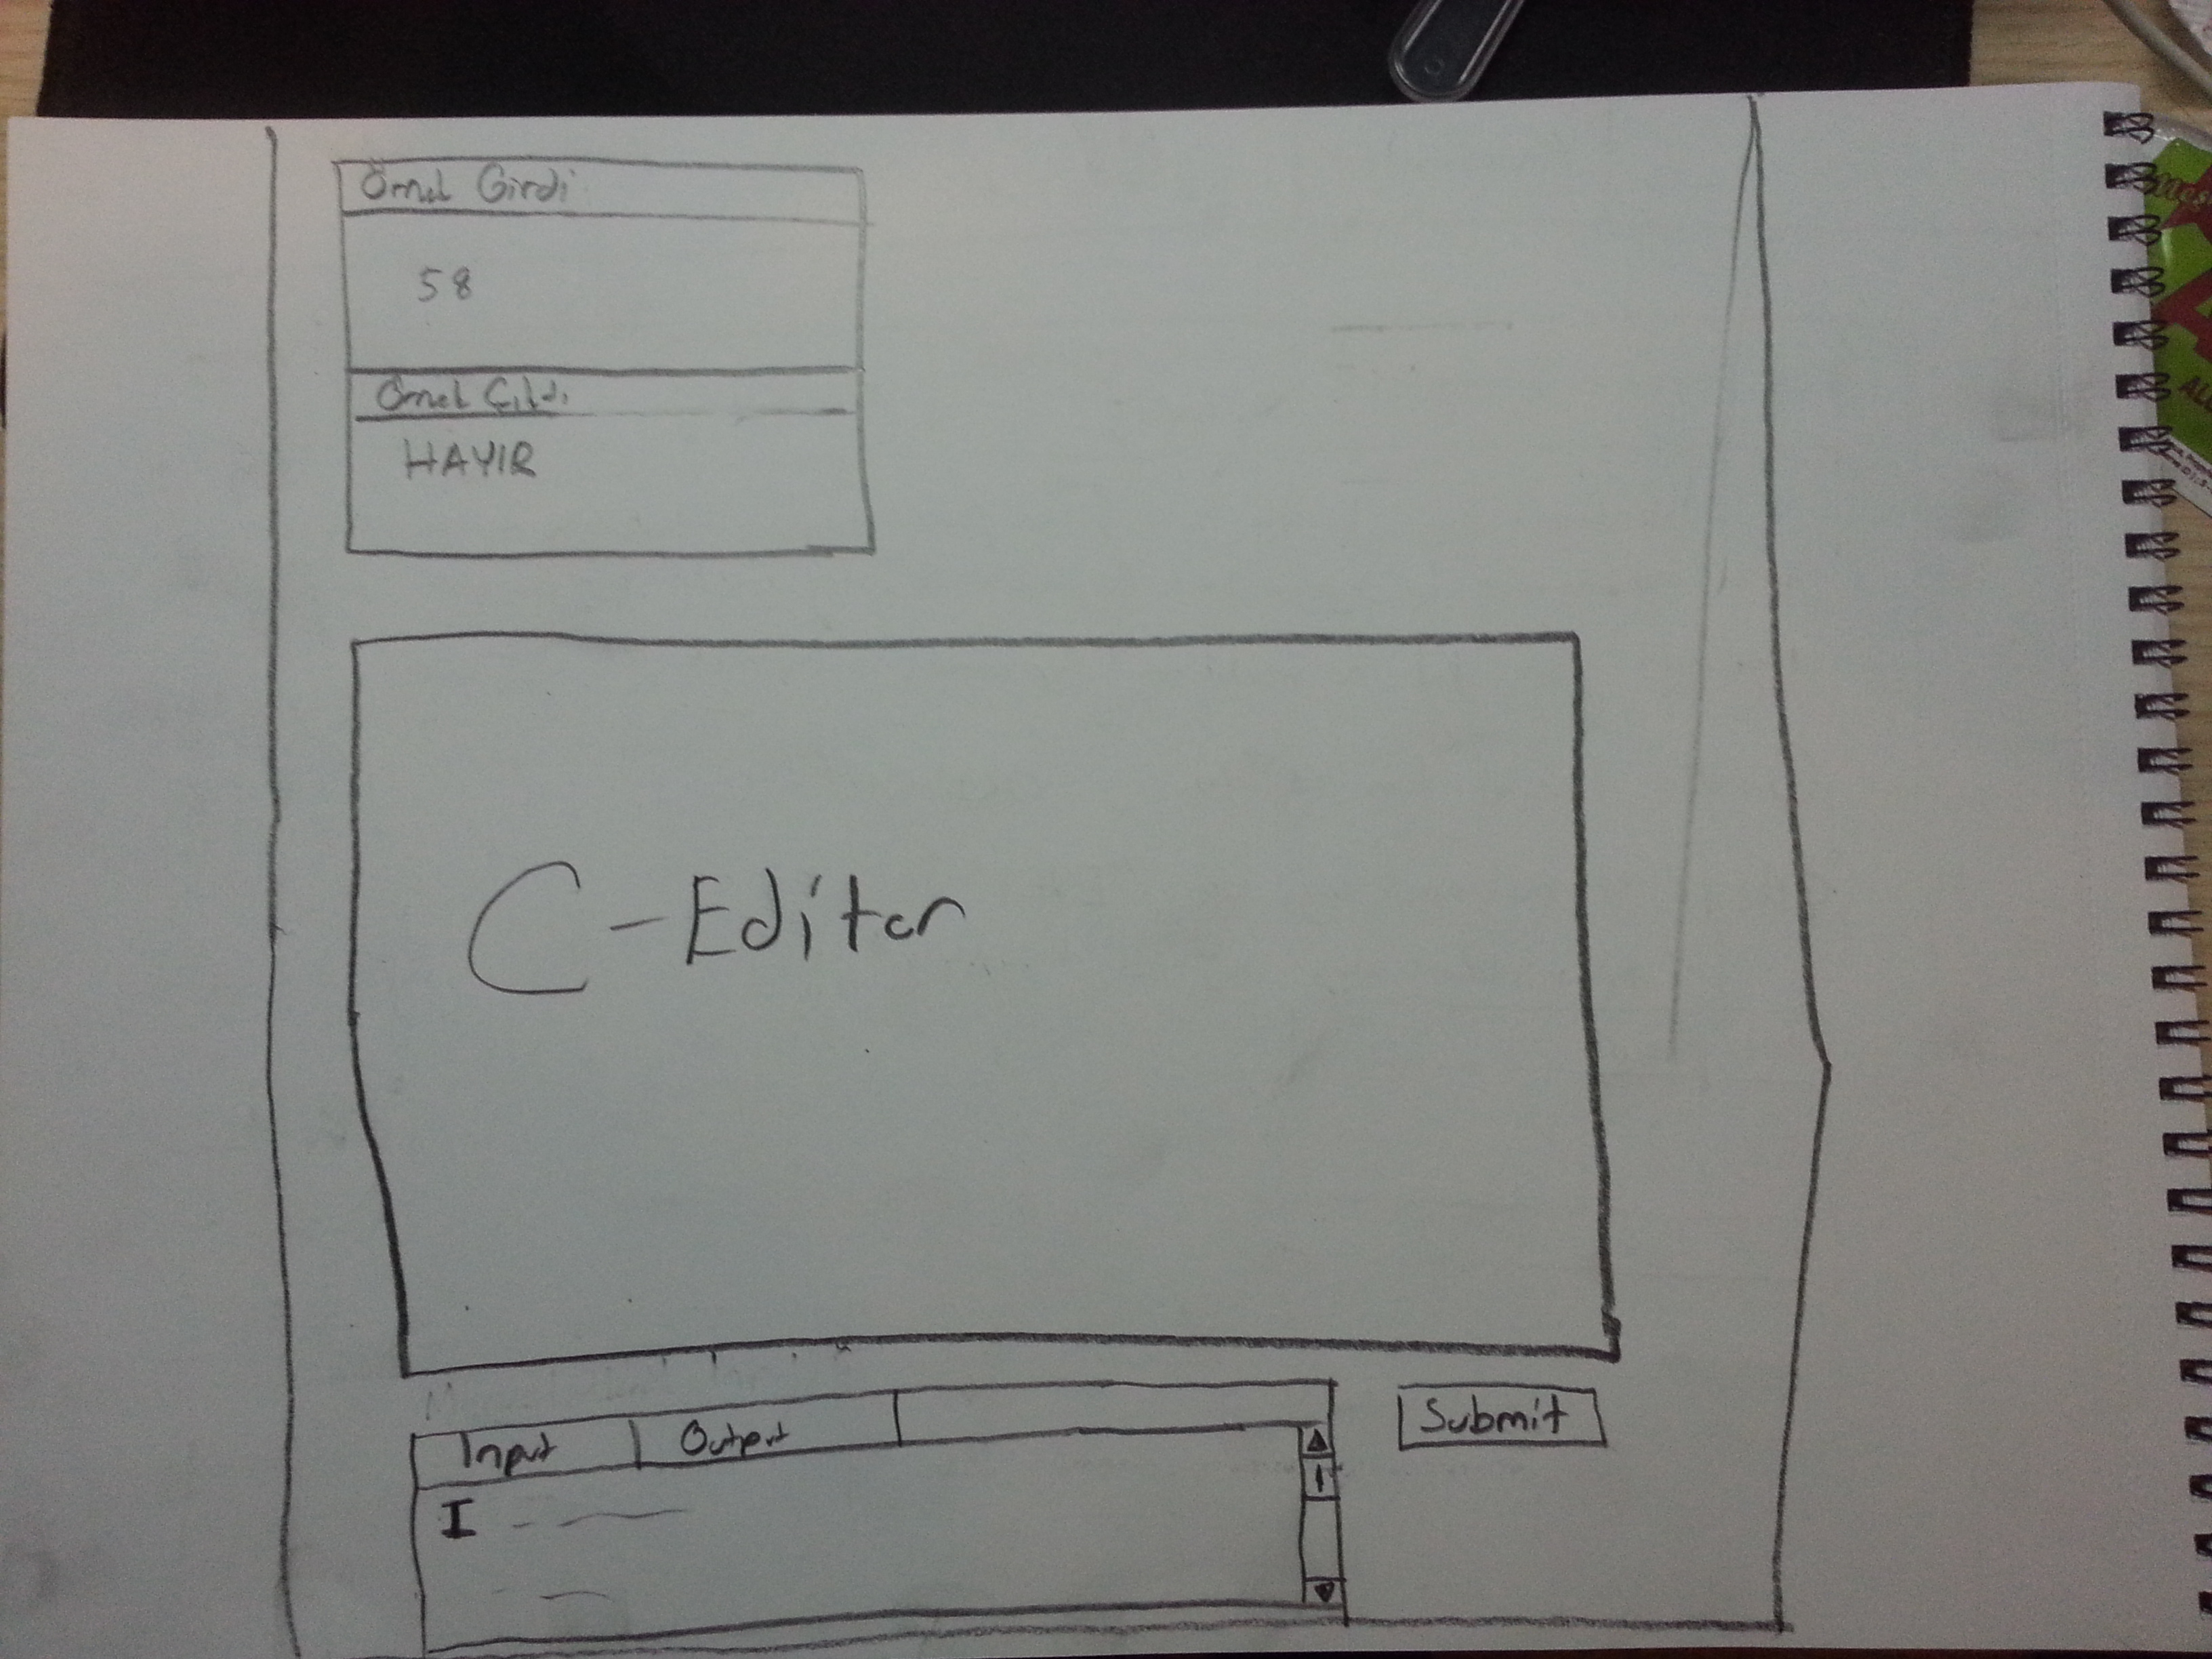 Örnek Girdi
58
Örnek Çıktı
HAYIR
C-Editor
Input Output
Submit
I